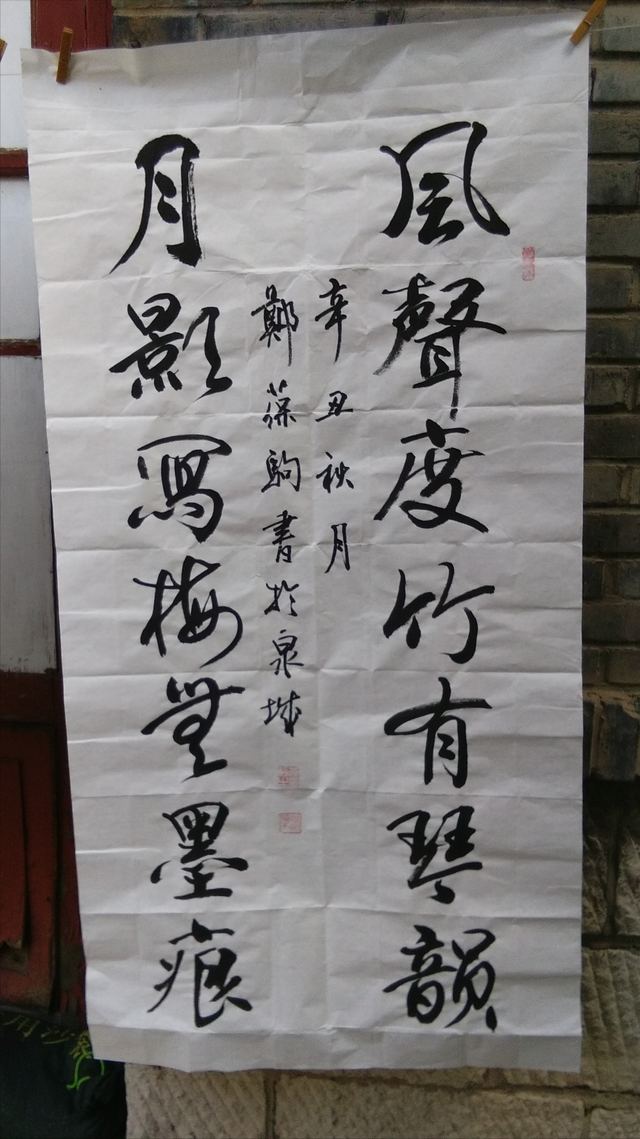 風聲度竹有琴韻
月影寫梅無墨痕
辛丑秋月
鄭葆駒書於泉城